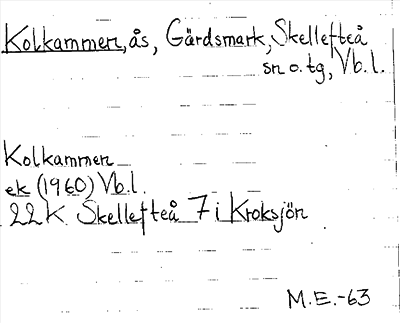 Kolkammen, ås, Gärdsmark, Skellefteå
sn o. tg, Vb. l.
Kolkammen
ek (1960) Vb.l.
22 K Skellefteå 7 i Kroksjön
M.E.-63